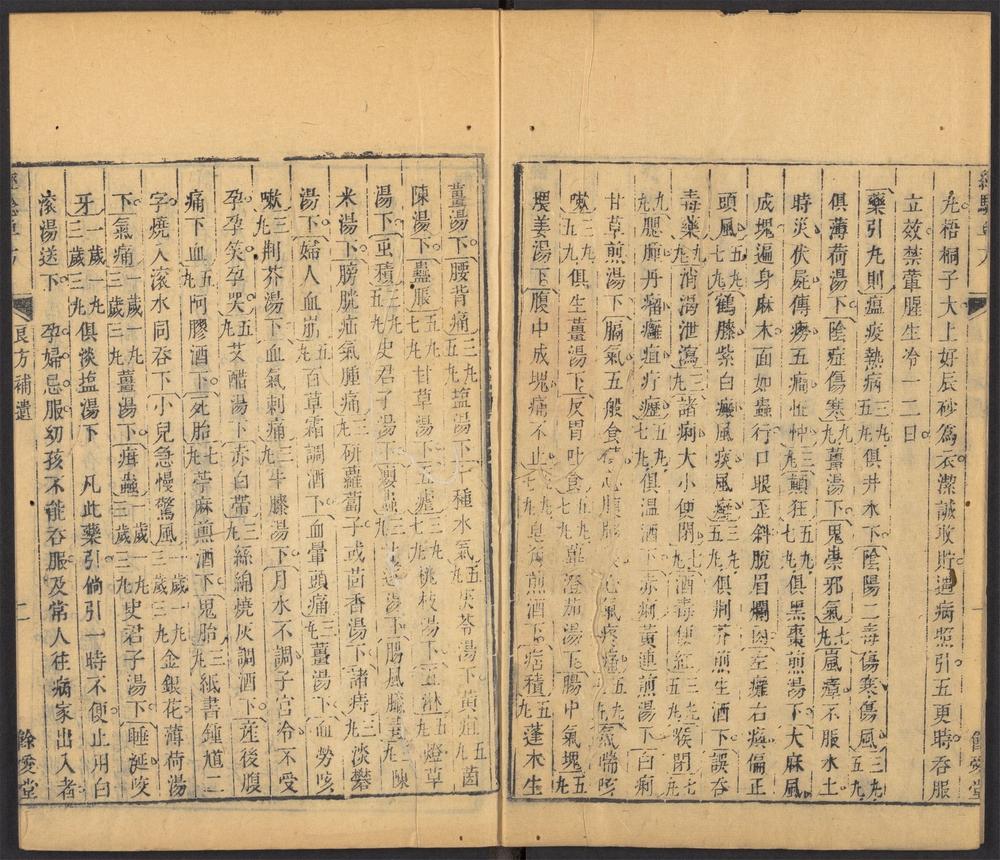 丸梧桐子大上好辰砂為衣潔誠收貯遇病照引五更時吞服
立效禁葷腥生冷一二日
藥引九則瘟疫熱病五丸三丸俱井水下陰陽二毒傷寒傷風五丸三丸
俱薄荷湯下陰症傷寒九丸薑湯下鬼祟邪氣七丸嵐瘴不服水土
時災伏屍傳癆五癇怔忡三丸顛狂九丸五丸俱黑棗煎湯下大麻風
成塊遍身麻木面如蟲行口眼歪斜脫眉爛肉左癱右瘓偏正
頭風七丸五丸鶴膝紫白癜風痰風癬五丸三丸俱荆芥煎生酒下誤吞
毒藥九丸消渴泄瀉三丸諸痢大小便閉七丸酒毒便紅三丸喉閉七丸
九丸腮腫丹瘤癰疽疔癧七丸五丸俱溫酒下赤痢黃連煎湯下白痢
甘草煎湯下膈氣五般食
嗽五丸三丸俱生薑湯下反胃吐食七丸五丸蓽澄茄湯下腸中氣塊五丸
煨姜湯下腹中成塊痛不止七丸九丸皂角煎酒下痞積五丸蓬朮生
薑湯下腰背痛五丸三丸塩湯下十種水氣五丸茯苓湯下黃疸五丸茵
陳湯下蠱脹七丸五丸甘草湯下五瘧七丸三丸桃枝湯下五淋五丸燈草
湯下蟲積五丸三丸史君子湯下腸風臟毒九丸陳
米湯下膀胱疝氣腫痛三丸研蘿蔔子或茴香湯下諸痔三丸淡礬
湯下婦人血崩五丸百草霜調酒下血暈頭痛三丸薑湯下血勞咳
嗽三丸荆芥湯下血氣刺痛三丸牛膝湯下月水不調子宮冷不受
孕孕笑孕哭五丸艾醋湯下赤白帶三丸絲綿燒灰調酒下産後腹
痛下血五丸阿膠酒下死胎七丸苧麻煎酒下鬼胎三丸紙書鍾馗二
字燒入滚水同吞下小兒急慢驚風一歲一丸三歲三丸金銀花薄荷湯
下氣痛一歲一丸三歲三丸薑湯下疳蟲一歲一丸三歲三丸史君子湯下睡涎咬
牙一歲一丸三歲三丸俱淡塩湯下　凡此藥引倘引一時不便止用白
滾湯送下　孕婦忌服幼孩不能吞服及常人往病家出入者
良方補遺
二
餘慶堂